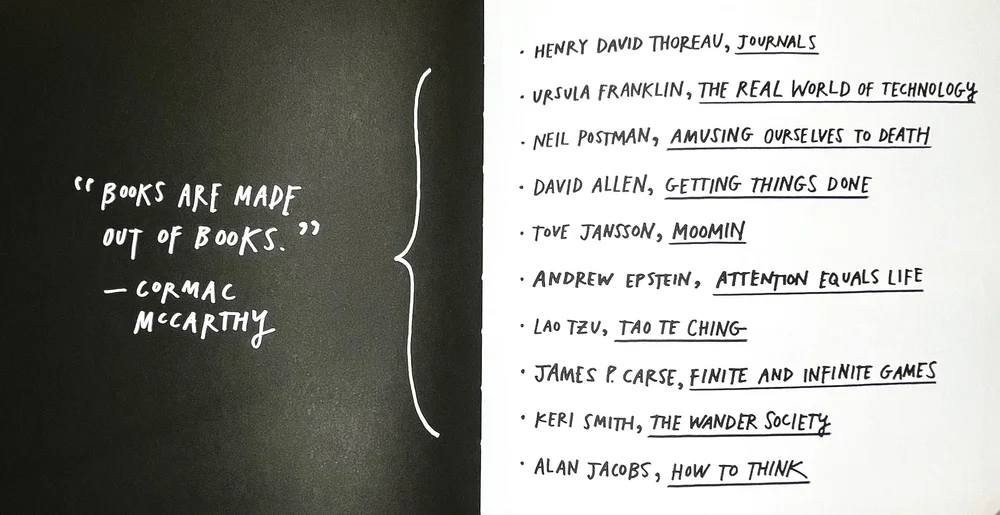 “BOOKS ARE MADE
OUT OF BOOKS.”
— CORMAC
MCCARTHY
• HENRY DAVID THOREAU, JOURNALS
• URSULA FRANKLIN, THE REAL WORLD OF TECHNOLOGY
• NEIL POSTMAN, AMUSING OURSELVES TO DEATH
• DAVID ALLEN, GETTING THINGS DONE
• TOVE JANSSON, MOOMIN
• ANDREW EPSTEIN, ATTENTION EQUALS LIFE
• LAO TZU, TAO TE CHING
• JAMES P. CARSE, FINITE AND INFINITE GAMES
• KERI SMITH, THE WANDER SOCIETY
• ALAN JACOBS, HOW TO THINK